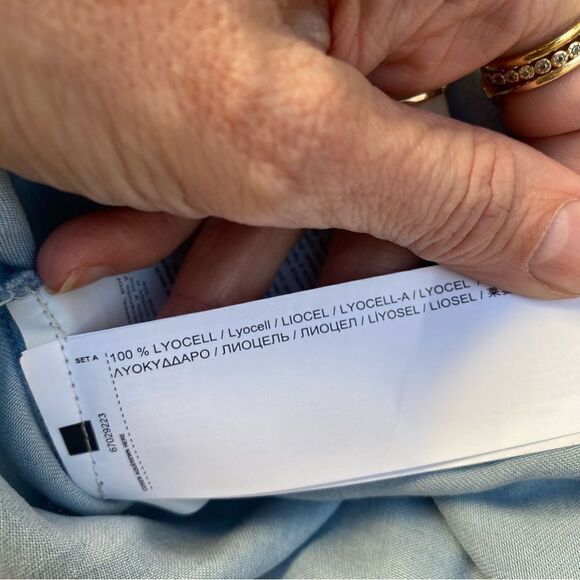 SET A
100 % LYOCELL / Lyocell / LIOCEL / LYOCELL-A / LYOCEL
ΛΥΟΚΥΔΔΑΡΟ / ЛИОЦЕЛЬ / ЛИОЦЕЛ / LİYOSEL / LIOSEL / 莱
67029223
COVER ADHERSIVE HERE